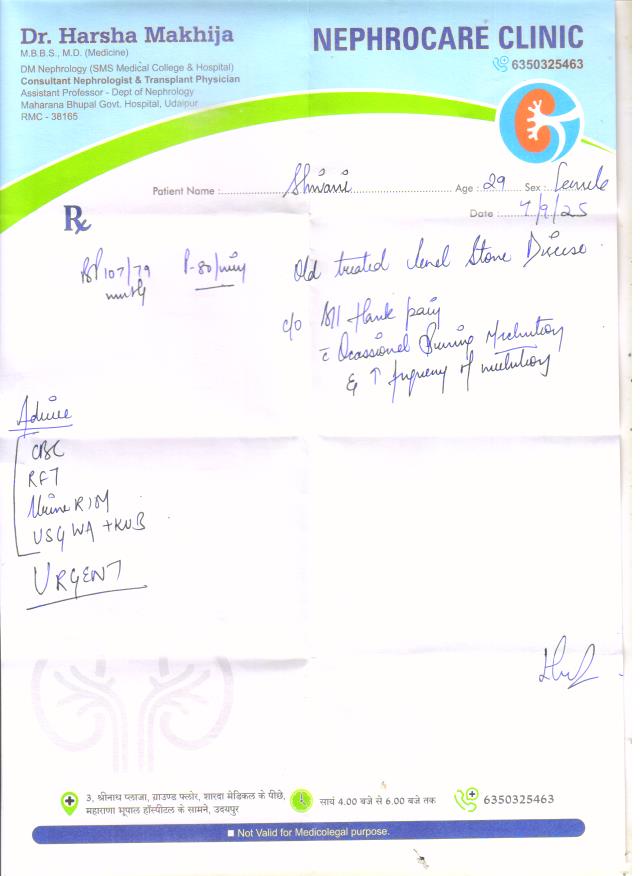 Dr. Harsha Makhija
M.B.B.S., M.D. (Medicine)
DM Nephrology (SMS Medical College & Hospital)
Consultant Nephrologist & Transplant Physician
Assistant Professor - Dept of Nephrology
Maharana Bhupal Govt. Hospital, Udaipur
RMC - 38165
NEPHROCARE CLINIC
6350325463
Patient Name :..........Shivani.......... Age : 29 Sex : Female
Date : 7/9/25
Rx
BP 107/79 P-80/min
mmHg
Old treated Renal Stone Disease
c/o B/l flank pain
c̄ Ocassional Burning Micturition
& ↑ frequency of micturition
Advice
CBC
RFT
Urine R/M
USG WA + KUB
URGENT
3, श्रीनाथ प्लाजा, ग्राउण्ड फ्लोर, शारदा मेडिकल के पीछे,
महाराणा भूपाल हॉस्पीटल के सामने, उदयपुर
सायं 4.00 बजे से 6.00 बजे तक
6350325463
■ Not Valid for Medicolegal purpose.